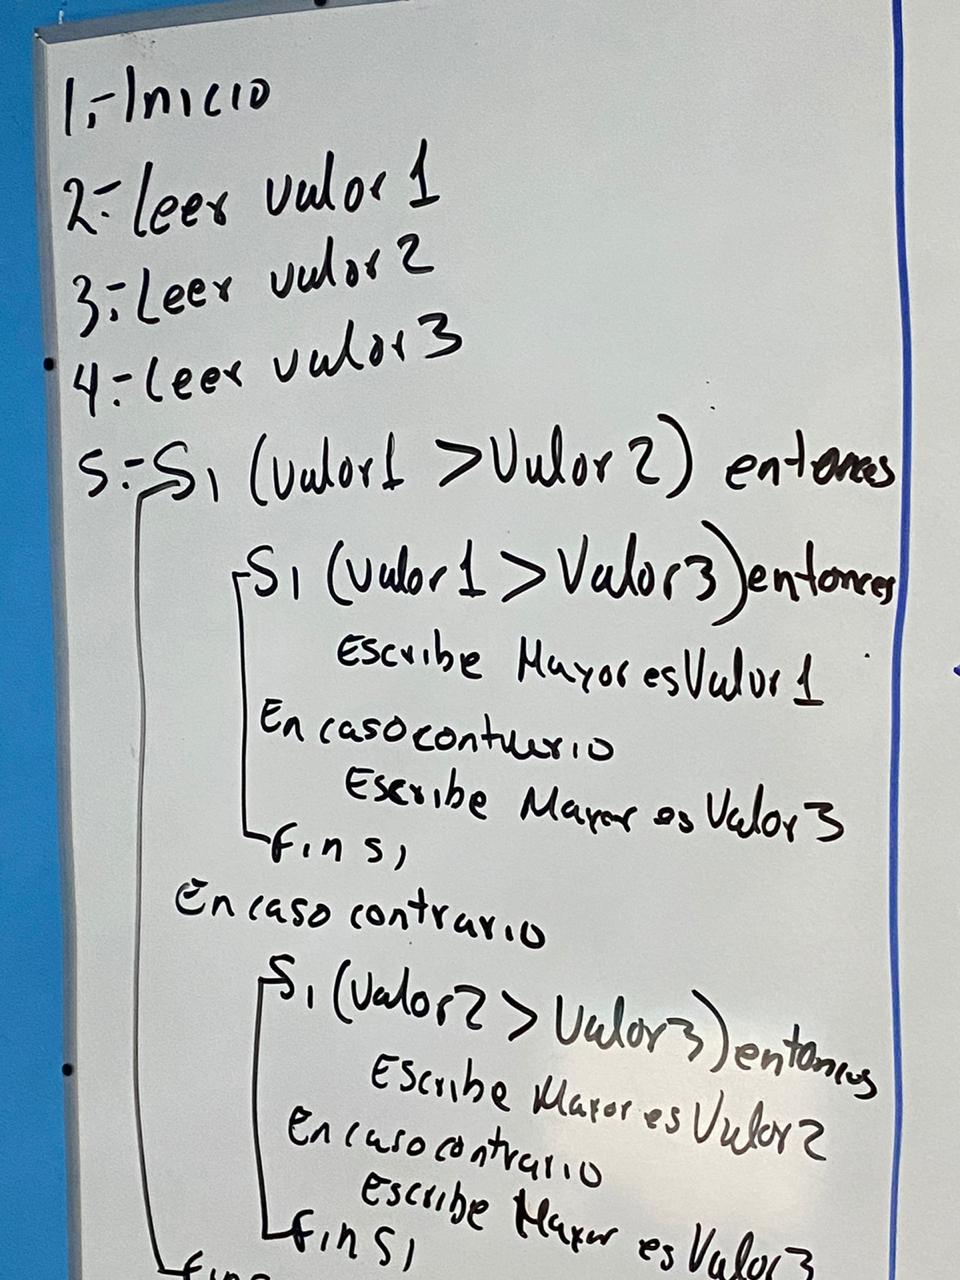 1.- Inicio
2.- Leer valor 1
3.- Leer valor 2
4.- Leer valor 3
5.- Si (valor1 > Valor 2) entonces
Si (valor 1 > Valor 3) entonces
Escribe Mayor es Valor 1
En caso contrario
Escribe Mayor es Valor 3
fin si
En caso contrario
Si (valor 2 > Valor 3) entonces
Escribe Mayor es Valor 2
En caso contrario
Escribe Mayor es Valor 3
fin si